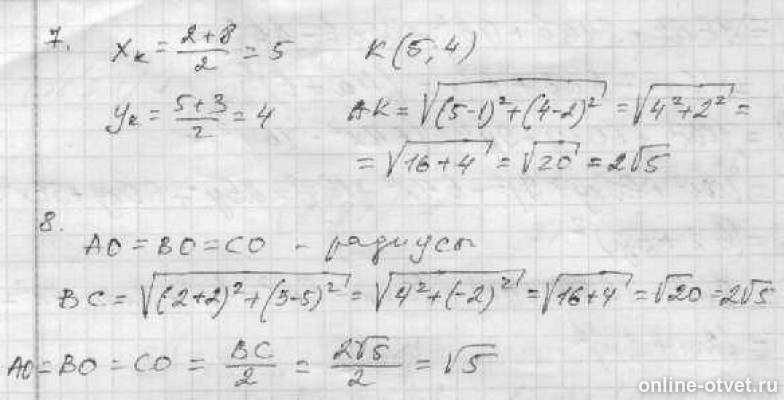 7. Xк = (2+8)/2 = 5 K(5;4)
Yк = (5+3)/2 = 4 AK = √((5-1)²+(4-2)²) = √(4²+2²) =
= √(16+4) = √20 = 2√5
8.
AO = BO = CO - радиусы
BC = √((2+2)²+(3-5)²) = √(4²+(-2)²) = √(16+4) = √20 = 2√5
AO = BO = CO = BC/2 = 2√5/2 = √5
online-otvet.ru